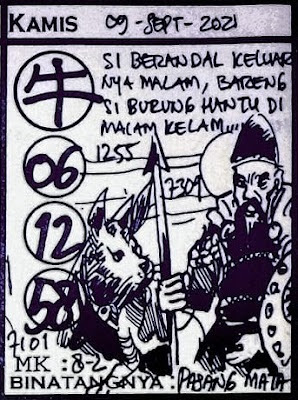 KAMIS 09-SEPT-2021
牛
SI BERANDAL KELUAR
NYA MALAM, BARENG
SI BURUNG HANTU DI
MALAM KELAM...
06
1255
7309
12
58
7101
MK : 8-2
BINATANGNYA : PASANG MATA